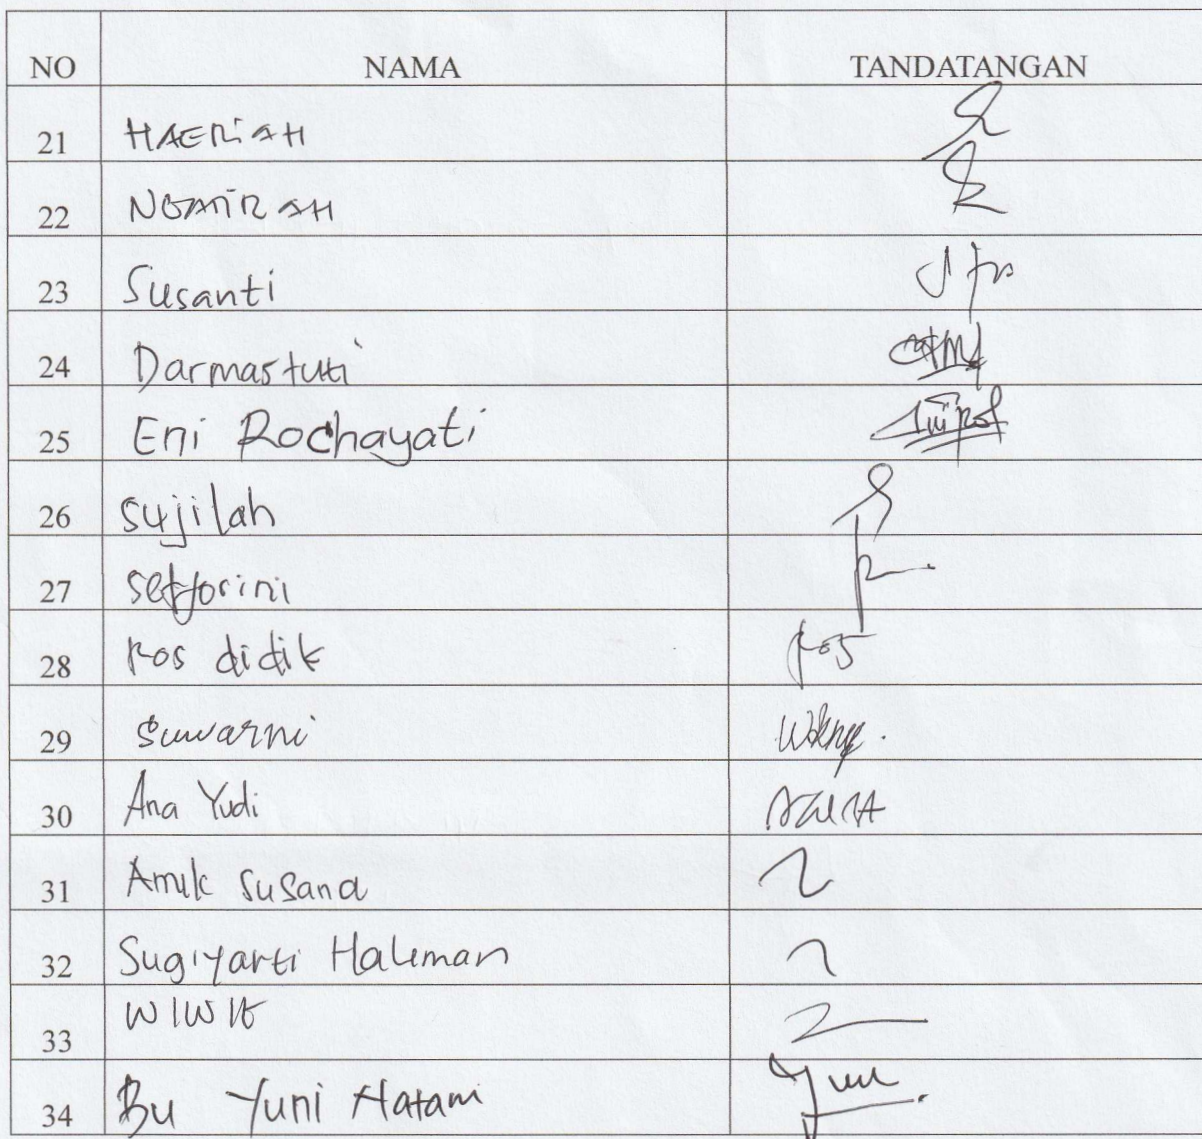 NO NAMA TANDATANGAN
21 HAERIAH
22 NGATIRAH
23 Susanti
24 Darmastuti
25 Eni Rochayati
26 sujilah
27 setyorini
28 kos didik kos
29 suwarni
30 Ana Yudi
31 Anik Susana
32 Sugiyarti Haliman
33 WIWIK
34 Bu Yuni Hatam